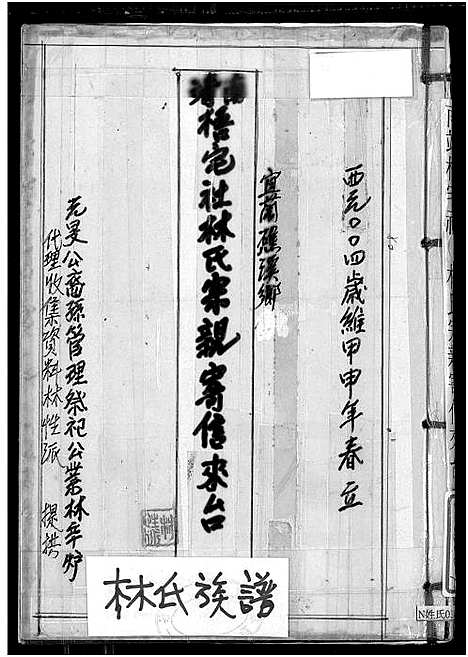 西元二〇〇四歲維甲申年春立
宜蘭礁溪鄉
南靖梧宅社林氏宗親寄信來台
元旻公裔孫管理祭祀公業林年炉
代理收集資料林性派 提拱
林氏族譜
N姓氏0